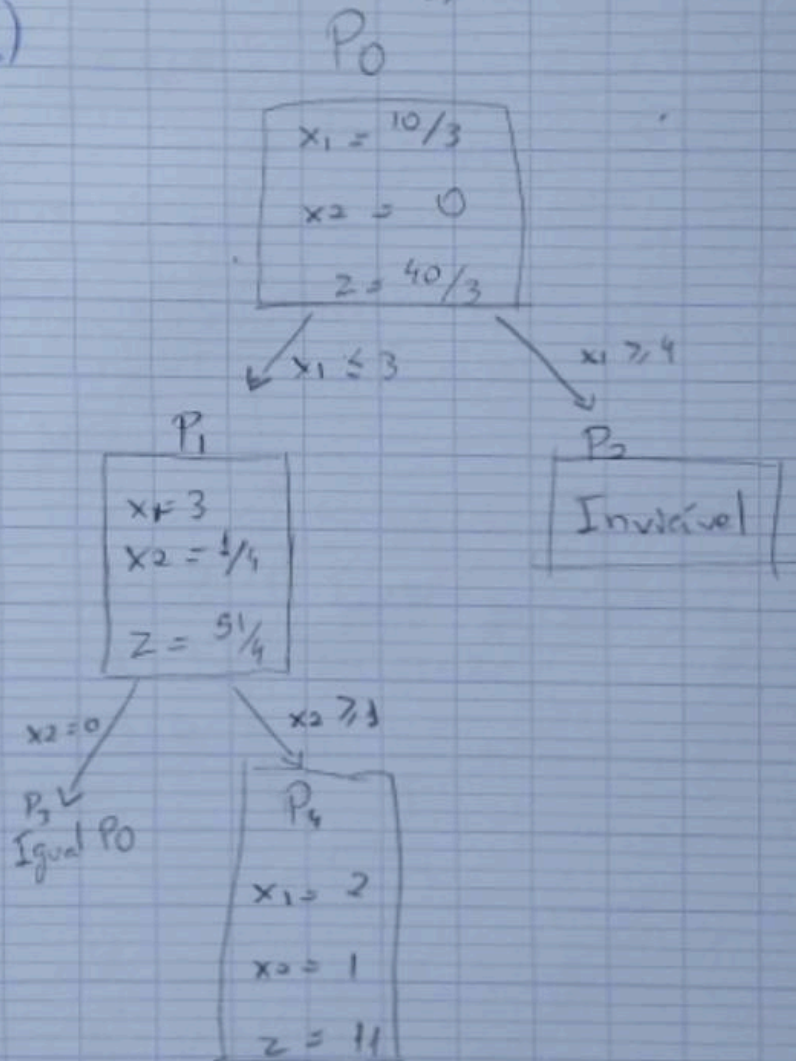 )
P0
x1 = 10/3
x2 = 0
z = 40/3
x1 ≤ 3
x1 ≥ 4
P1
x1 = 3
x2 = 1/4
Z = 51/4
P2
Inviável
x2 = 0
x2 ≥ 1
P3
Igual P0
P4
x1 = 2
x2 = 1
z = 11